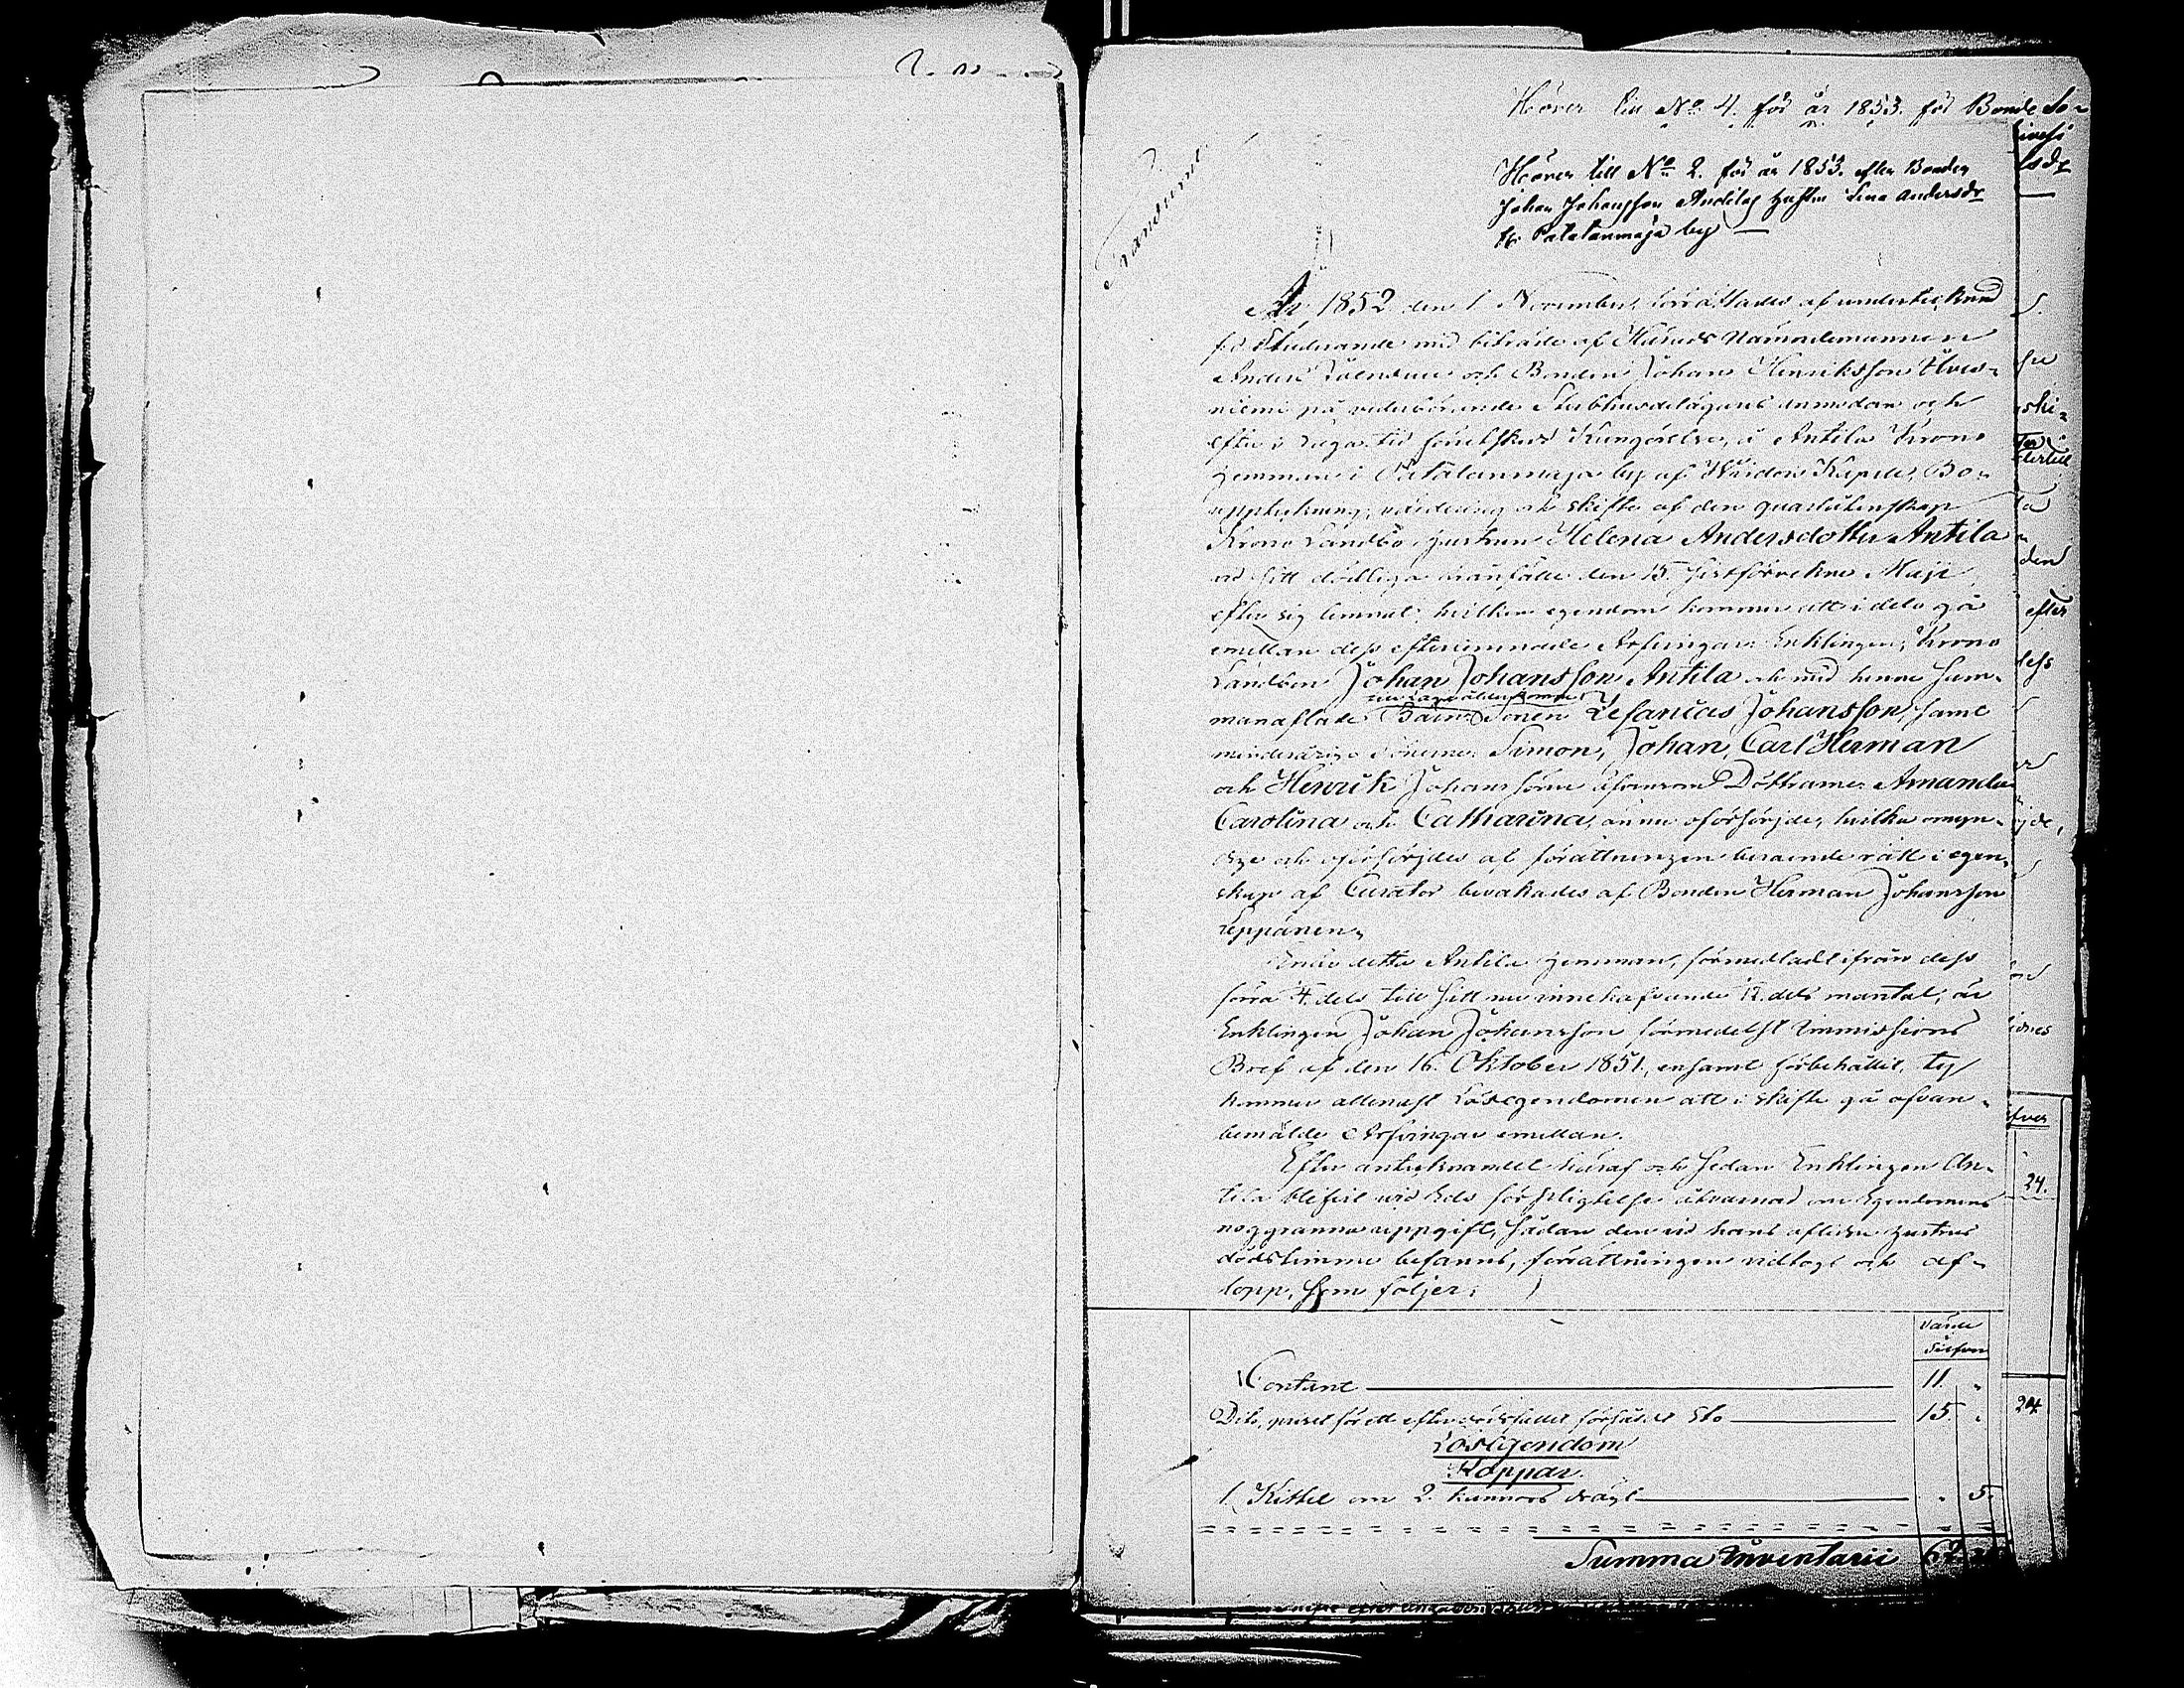 Hörer till No 4. för år 1853. för Bonde
Hörer till No 2. för år 1853. efter Bonden
Johan Johansson Andilas hustru Lena Andersdr
fr. Patatanmaja by
År 1852 den 1 November, förrättades af undertecknad
f.d. Studerande med biträde af Härads Nämndemannen
Anders och Bonden Johan Henriksson Ulves-
niemi på vederbörande Sterbhusdelägares anmodan och
efter i laga tid föruthskedd Kungörelse, å Antila Krono
hemman i Patatanmaja by af Wirdois Kapell, Bo-
uppteckning, värdering och skifte af den qvarlåtenskap
Krono Landbo hustrun Helena Andersdotter Antila
vid sitt dödliga frånfälle den 15. sistförvekne Maji
efter sig lemnat; hvilken egendom kommer att i delo gå
emellan dess efterlemnade Arfvingar: Enklingen, Krono
Landbon Johan Johansson Antila och med henne sam-
manaflade Barn: Sonen Zefanias Johansson, samt
minderårige Sönerne Simon, Johan, Carl Herman
och Henrik Johanssöner äfvensom Döttrarne Amanda
Carolina och Catharina, ännu oförsörjde, hvilka omyn-
dige och oförsörjdes af förrättningen beroende rätt i egen-
skap af Curator bevakades af Bonden Herman Johansson
Leppänen.
Enär detta Antila hemman, förmedladt ifrån dess
förra 4. dels till sitt nu innehafvande 12. dels mantal, är
Enklingen Johan Johansson förmedelst Immissions
Bref af den 16. Oktober 1851, ensamt förbehållit, ty
kommer allenast Lösegendomen att i skifte gå ofvan-
bemälde Arfvingar emellan.
Efter antecknandet häraf och sedan Enklingen An-
tila blifvit vid Eds förpligtelse åtvarnad om Egendomens
noggranna uppgift, sådan den vid hans aflidna hustrus
dödstimme befanns, förrättningen vidtogs och af-
lopp, som följer:
Värde
Silfver
Contant 11.
Dito, priset för ett efter dödsfallet försåldt Sto 15.
Lösegendom
Koppar.
1. Kittel om 2. kannors drägt 5.
Summa Inventarii 62